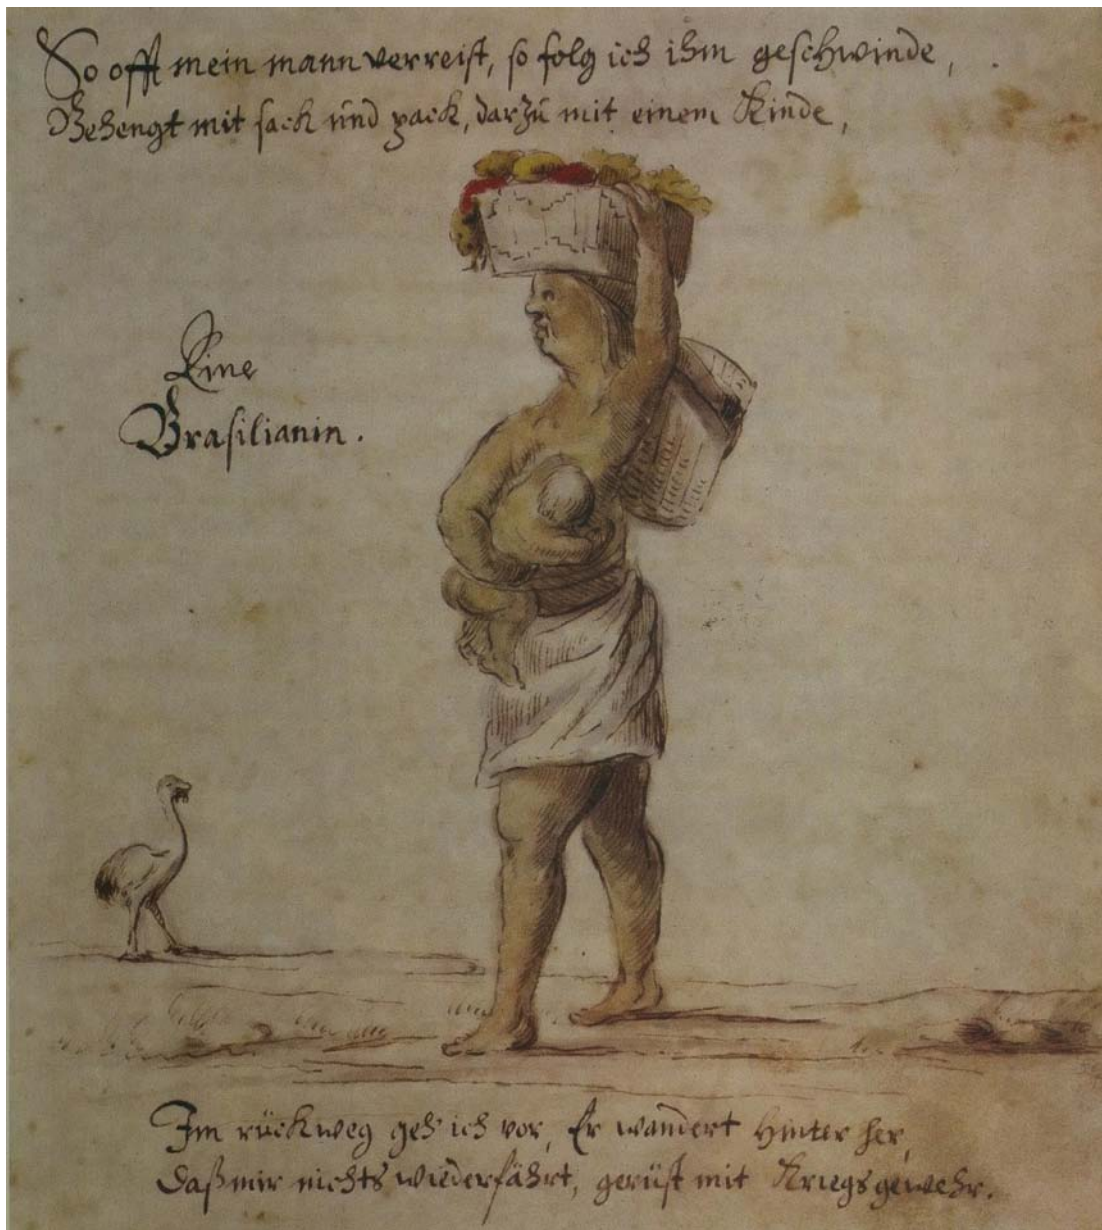 So offt mein mann verreist, so folg ich ihm geschwinde,
Behengt mit sack und pack, darzu mit einem Kinde,
Eine
Brasilianin.
Im rückweg geh ich vor, Er wandert hinter her,
Daß mir nichts wiederfährt, gerüst mit Kriegsgewehr.